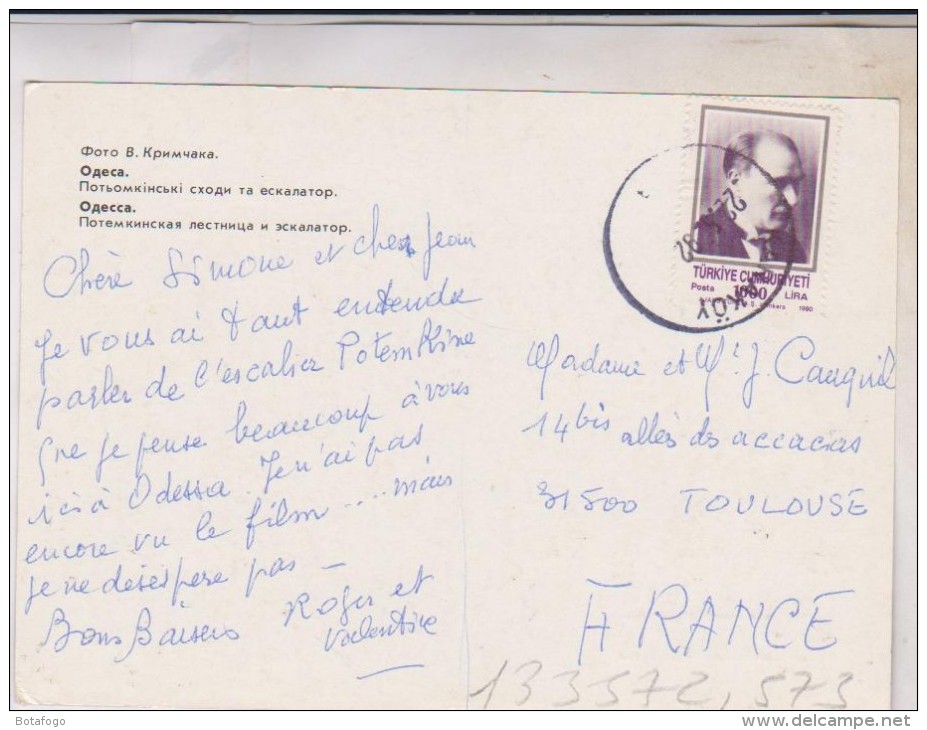 Фото В. Кримчака.
Одеса.
Потьомкінські сходи та ескалатор.
Одесса.
Потемкинская лестница и эскалатор.
Chère Simone et cher Jean
Je vous ai tant entendu
parler de l'escalier Potemkine
que je pense beaucoup à vous
ici à Odessa. Je n'ai pas
encore vu le film ... mais
je ne désespère pas –
Bons Baisers Roger et
Valentine
TÜRKİYE CUMHURİYETİ
Posta 1000 LİRA
1990
KÖY
Madame et Mr J.
14 bis allès des accacias
31500 TOULOUSE
FRANCE
133572,573
Botafogo
www.delcampe.net